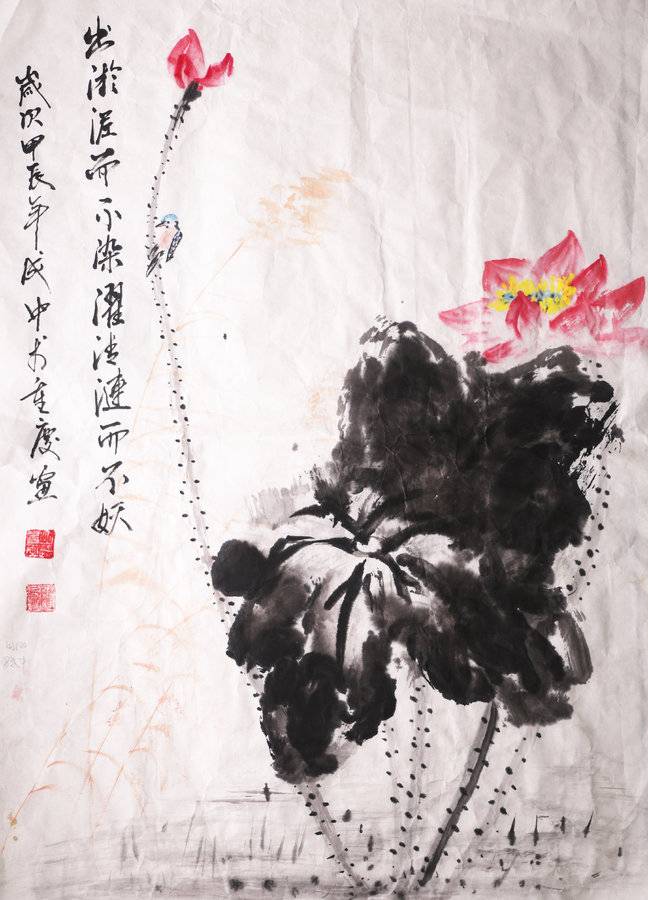 出淤泥而不染濯清漣而不妖
歲次甲辰年中重慶